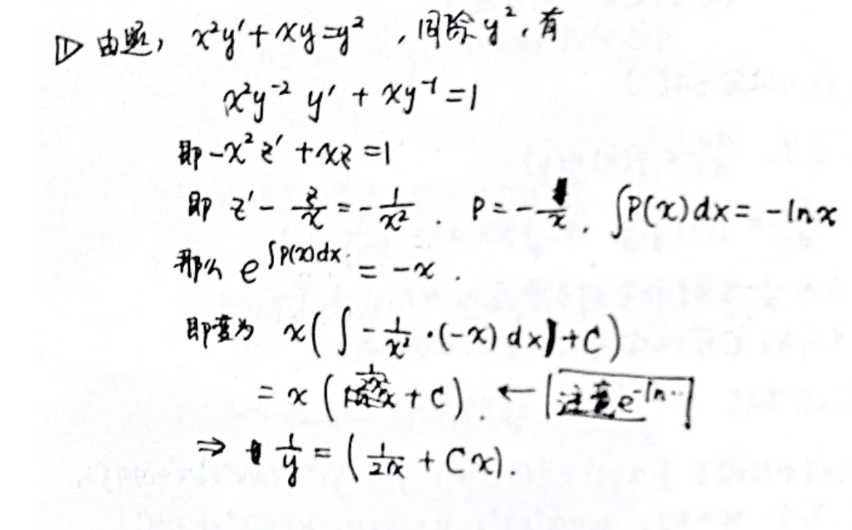 ① 由题, x²y′ + xy = y², 同除 y², 有
x²y⁻² y′ + xy⁻¹ = 1
即 -x² z′ + xz = 1
即 z′ - z/x = -1/x². P = -1/x. ∫P(x)dx = -ln x
那么 e^{∫P(x)dx} = -x.
即变为 x(∫ -1/x² · (-x) dx + C)
= x ( + C). ← 注意 e^{-ln…}
⇒ 1/y = (1/2x + Cx).